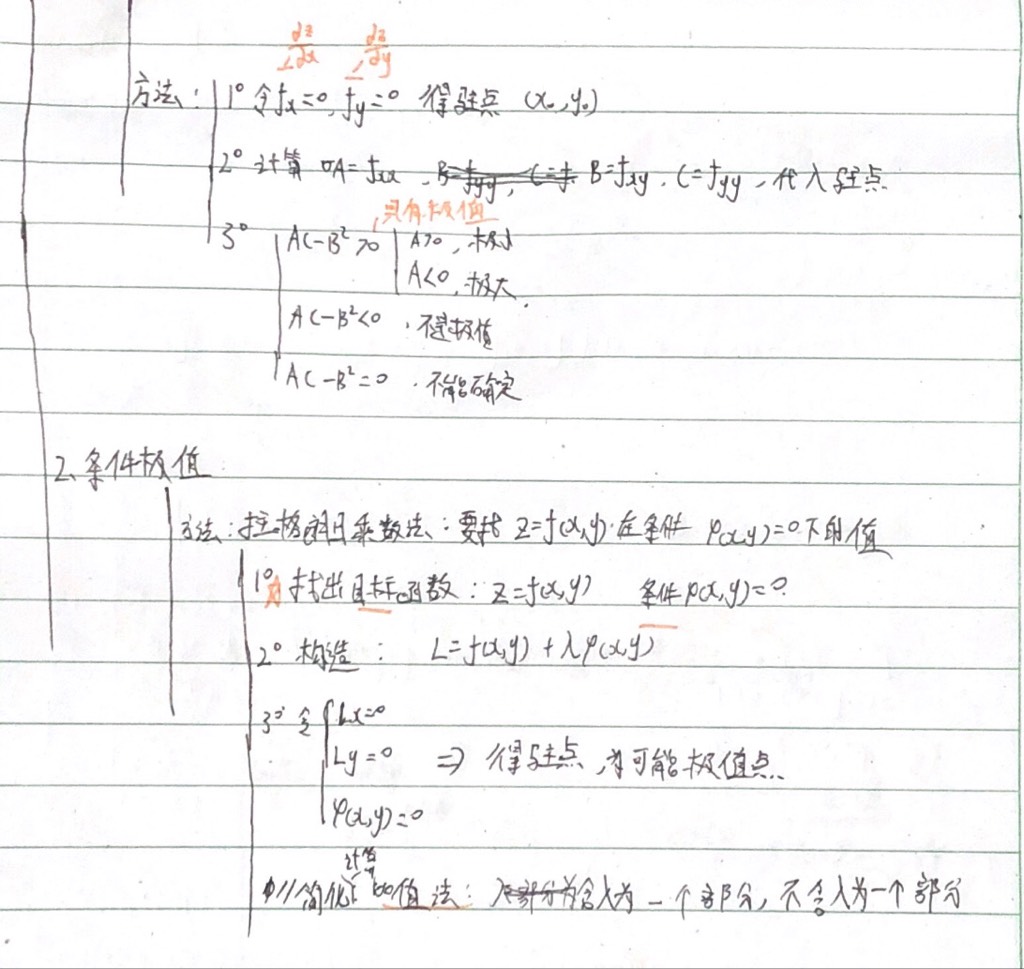 ∂z/∂x ∂z/∂y
方法: 1° 令fx=0, fy=0 得驻点 (x₀,y₀)
2° 计算 A=fxx, B=fyy, C=f B=fxy, C=fyy, 代入驻点
具有极值
3° AC-B²>0 A>0, 极小
A<0, 极大.
AC-B²<0, 不是极值
AC-B²=0, 不能确定
2、条件极值
方法:拉格朗日乘数法:要求 z=f(x,y) 在条件 φ(x,y)=0下的值
1° 找出目标函数: z=f(x,y) 条件φ(x,y)=0.
2° 构造: L=f(x,y)+λφ(x,y)
3° 令 Lx=0
Ly=0 ⇒ 得驻点,为可能极值点.
φ(x,y)=0
计算
简化 值法: 部分为含λ为一个部分,不含λ为一个部分